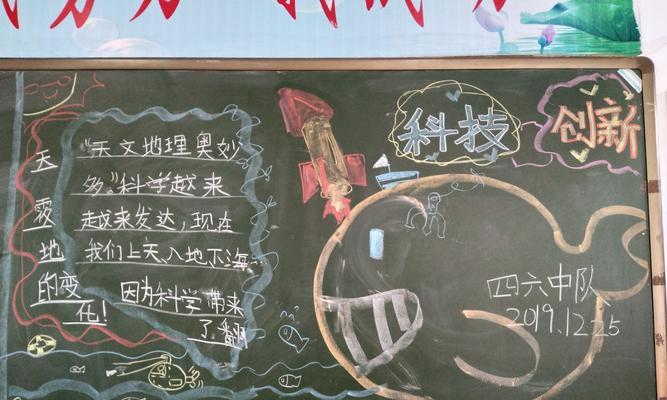 科技
创新
“天文地理奥妙
多”科学越来
越来发达，现在
我们上天入地下海
因为科学带来
了翻
天
覆
地
的变
化！
四六中队
2019.12.25